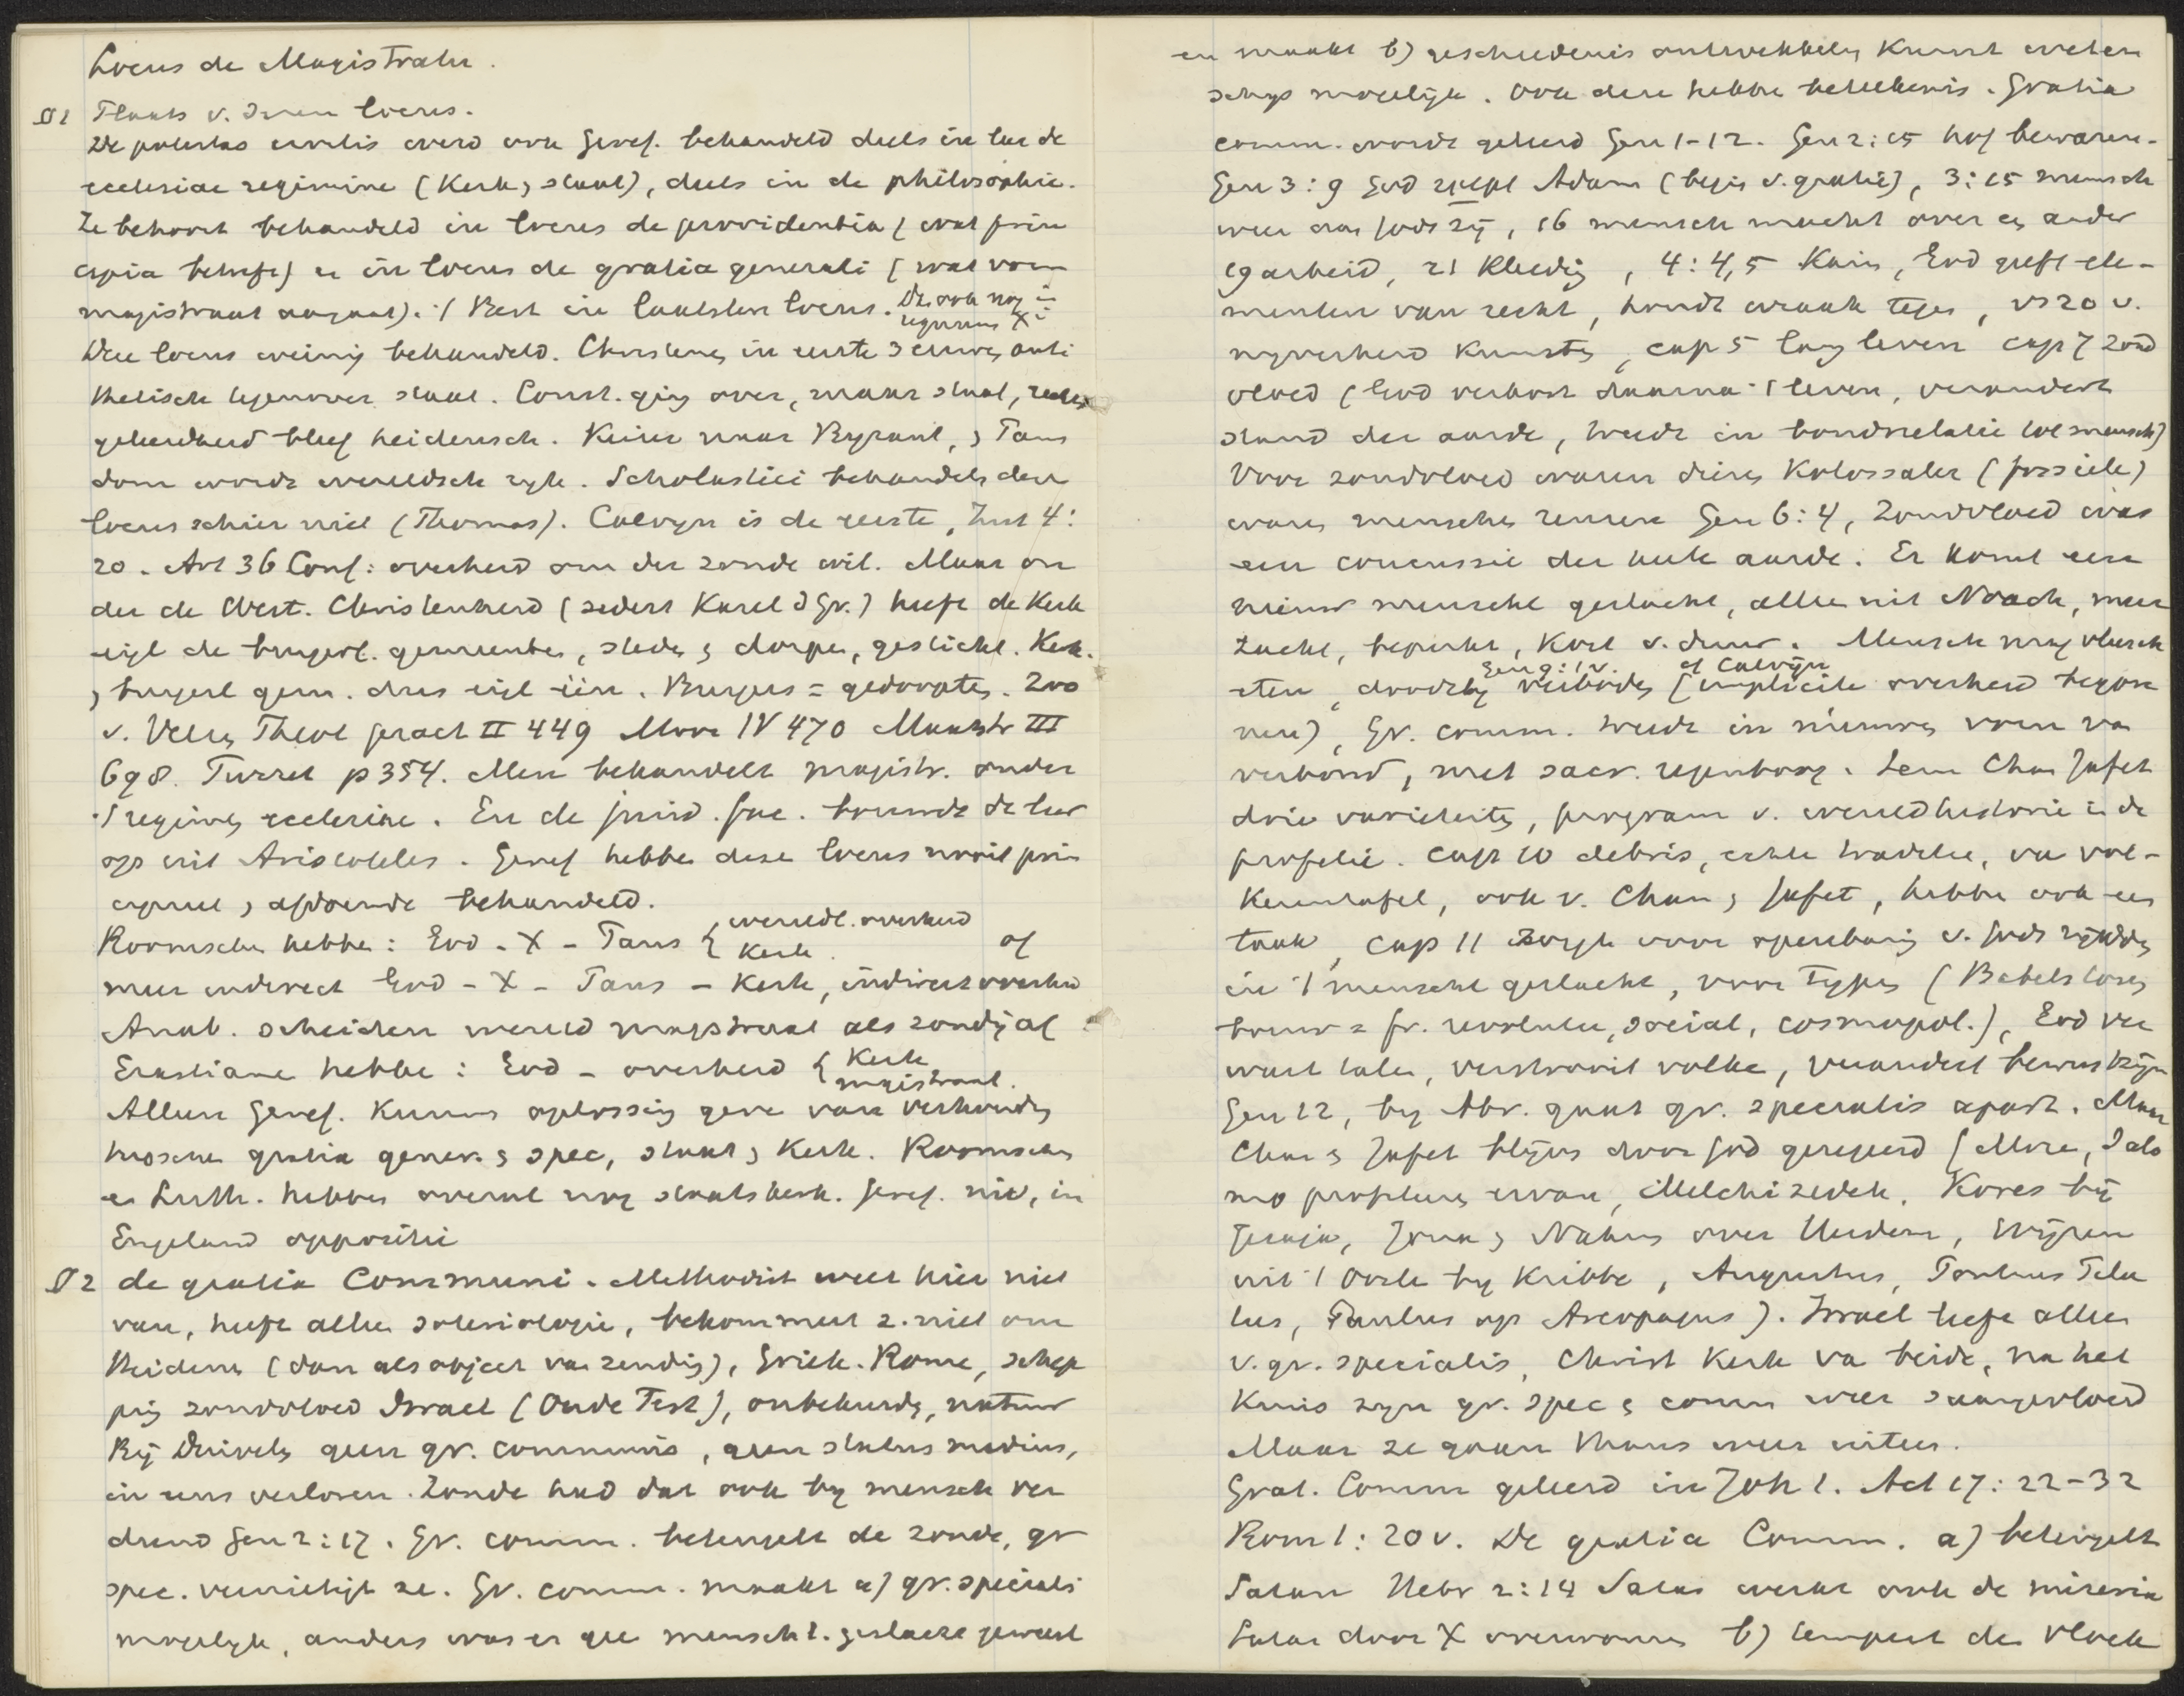 Locus de Magistratu.
§1 Plaats v. dezen locus.
De potestas civilis werd ook Geref. behandeld deels in loc de
ecclesiae regimine (Kerk, staat), deels in de philosophie.
Ze behoort behandeld in locus de providentia (wat prin
cipia betreft) en in locus de gratia generali (wat vorm
magistraat aangaat). Best in laatsten locus. Die ook nog in
regnum X i
Deze locus weinig behandeld. Christenen in eerste 3 eeuwen anti
thetisch tegenover staat. Const. ging over, maar staat, rechts
geleerdheid bleef heidensch. Keizer naar Byzant, Paus
dom wordt wereldsch ryk. Scholastici behandelen den
locus schier niet (Thomas). Calvyn is de eerste, Inst 4:
20. Art 36 Conf: overheid om der zonde wil. Maar on
der de West. Christenheid (sedert Karel d Gr.) heeft de Kerk
eigl de burgerl. gemeenten, steden, dorpen, gesticht. Kerk.
, burgerl gem. dus eigl één. Burgers = gedoopten. Zoo
v. Velzen Theol pract II 449 Moor IV 470 Maastr III
698. Turret p 354. Men behandelt magistr. onder
't regimen ecclesiae. En de jurid. fac. bouwde de leer
op uit Aristoteles. Geref hebben deze locus nooit prin
cipieel, afdoende behandeld.
Roomschen hebben: God - X - Paus { wereldl. overheid
Kerk. of
meer indirect God - X - Paus - Kerk, indirect overheid
Anab. scheiden wereld magistraat als zondig af
Erastiane hebben: God - overheid { Kerk
magistraat.
Alleen Geref. kunnen oplossing geven van verhouding
tusschen gratia gener. & spec, staat & Kerk. Roomschen
en Luth. hebben overal nog staatskerk. Geref. niet, in
Engeland oppositie
§2 de gratia Communi. Methodist weet hier niet
van, heeft alleen soteriologie, bekommert z. niet om
Heidenen (dan als object van zending), Griek. Rome, schep
ping zondvloed Israel (Oude Test), onbekeerde, natuur
By Duivels geen gr. communis, geen status medius,
in eens verloren. Zonde had dat ook by mensch ver
diend Gen 2:17. Gr. comm. beteugelt de zonde, gr
spec. vernietigt ze. Gr. comm. maakt a) gr. specialis
mogelyk, anders was er geen menschl. geslacht geweest
en maakt b) geschiedenis ontwikkeling kunst weten
schap mogelyk. Ook deze hebben beteekenis. Gratia
comm. wordt geleerd Gen 1-12. Gen 2:15 hof bewaren.
Gen 3:9 God zoekt Adam (begin v. gratie), 3:15 mensch
weer aan Gods zij, 16 mensch macht over en ander
19 arbeid, 21 Kleeding, 4:4,5 Kain, God geeft ele-
menten van recht, houdt wraak tegen, vs 20 v.
nyverheid Kunsten, cap 5 lang leven cap 7 zond
vloed (God verkort daarna 't leven, verandert
stand der aarde, treedt in bondrelatie tot mensch)
Voor zondvloed waren dieren Kolossaler (fossiele)
waren menschen reuzen Gen 6:4, Zondvloed was
een concussie der heele aarde. Er komt een
nieuw menschl geslacht, alleen uit Noach, meer
zacht, beperkt, Kort v. duur. Mensch mag vleesch
eten, doodslag Gen 9:1v. verboden (of Calvijn implicite overheid begon
nen), Gr. comm. treedt in nieuwen vorm van
verbond, met sacr. regenboog. Sem Cham Jafet
drie varieteiten, program v. wereldhistorie in de
profetie. Cap 10 debris, echte traditie, van vol-
kerentafel, ook v. Cham, Jafet, hebben ook een
taak, Cap 11 zorgt voor openbaring v. Gods rykdom
in 't menschl geslacht, voor typen (Babels toren
bouw = fr. revolutie, social, cosmopol.), God ver
wart talen, verstrooit volken, verandert bewustzijn
Gen 12, by Abr. gaat gr. specialis apart. Maar
Cham & Jafet blijven door God geregeerd (Moze, Salo
mo profeteren ervan, Melchizedek, Kores bij
Jesaja, Jona, Nahum over Heidenen, Wijzen
uit 't Oosten by Kribbe, Augustus, Pontius Pila
tus, Paulus op Areopagus). Israel leeft alleen
v. gr. specialis, Christ Kerk van beide, na het
Kruis zyn gr. spec & comm weer saamgevloeid
Maar ze gaan thans weer uiteen.
Grat. Comm geleerd in Joh 1. Act 17:22-32
Rom 1:20v. De gratia Comm. a) beteugelt
Satan Hebr 2:14 Satan werkt ook de miseria
Satan door X overwonnen b) tempert den vloek